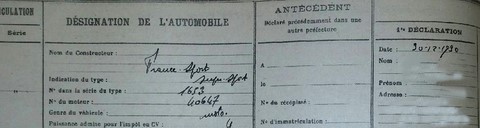 CULATION
Série
DÉSIGNATION DE L'AUTOMOBILE
Nom du Constructeur :
France-Sport
Indication du type :
N° dans la série du type : 1653
N° du moteur : 40647
Genre du véhicule : moto.
Puissance admise pour l'impôt en CV : 4
ANTÉCÉDENT
Déclaré précédemment dans une
autre préfecture
A
le
N° du récépissé :
N° d'immatriculation :
1re DÉCLARATION
Date : 30-12-1930
Nom :
Prénom
Adresse